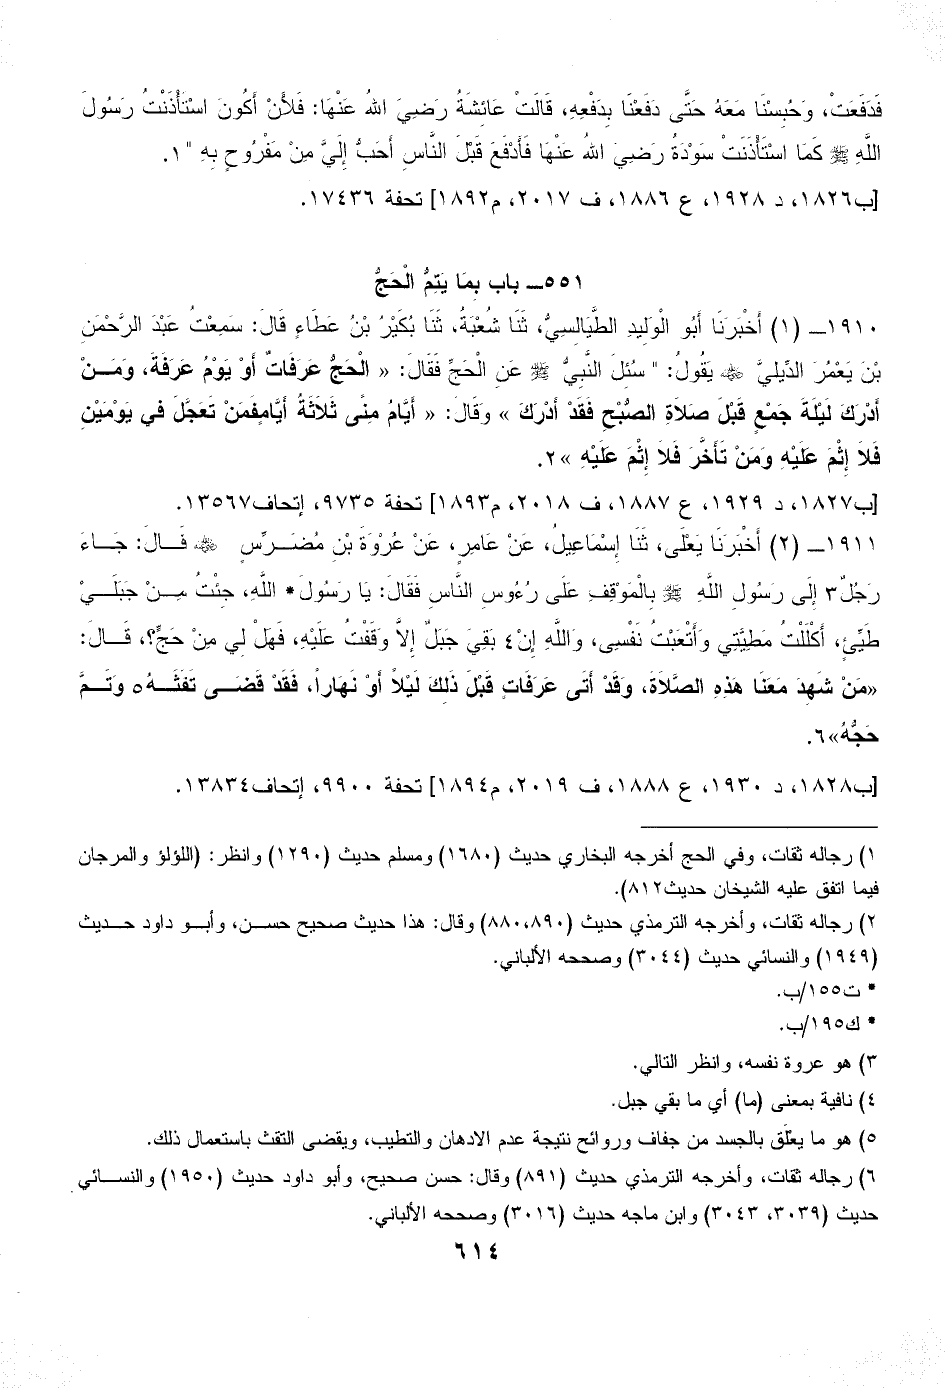 فَدَفَعَتْ، وَحُبِسْنَا مَعَهُ حَتَّى دَفَعْنَا بِدَفْعِهِ، قَالَتْ عَائِشَةُ رَضِيَ اللهُ عَنْهَا: فَلأَنْ أَكُونَ اسْتَأْذَنْتُ رَسُولَ
اللَّهِ ﷺ كَمَا اسْتَأْذَنَتْ سَوْدَةُ رَضِيَ اللهُ عَنْهَا فَأَدْفَعَ قَبْلَ النَّاسِ أَحَبُّ إِلَيَّ مِنْ مَفْرُوحٍ بِهِ "١.
[ب١٨٢٦، د ١٩٢٨، ع ١٨٨٦، ف ٢٠١٧، م١٨٩٢] تحفة ١٧٤٣٦.
٥٥١ــ باب بِمَا يَتِمُّ الْحَجُّ
١٩١٠ــ (١) أَخْبَرَنَا أَبُو الْوَلِيدِ الطَّيَالِسِيُّ، ثَنَا شُعْبَةُ، ثَنَا بُكَيْرُ بْنُ عَطَاءٍ قَالَ: سَمِعْتُ عَبْدَ الرَّحْمَنِ
بْنَ يَعْمُرَ الدِّيلِيَّ ﷺ يَقُولُ: " سُئِلَ النَّبِيُّ ﷺ عَنِ الْحَجِّ فَقَالَ: « الْحَجُّ عَرَفَاتٌ أَوْ يَوْمُ عَرَفَةَ، وَمَــنْ
أَدْرَكَ لَيْلَةَ جَمْعٍ قَبْلَ صَلاَةِ الصُّبْحِ فَقَدْ أَدْرَكَ » وَقَالَ: « أَيَّامُ مِنًى ثَلاَثَةُ أَيَّامٍفَمَنْ تَعَجَّلَ في يَوْمَيْنِ
فَلاَ إِثْمَ عَلَيْهِ وَمَنْ تَأَخَّرَ فَلاَ إِثْمَ عَلَيْهِ »٢.
[ب١٨٢٧، د ١٩٢٩، ع ١٨٨٧، ف ٢٠١٨، م١٨٩٣] تحفة ٩٧٣٥، إتحاف١٣٥٦٧.
١٩١١ــ (٢) أَخْبَرَنَا يَعْلَى، ثَنَا إِسْمَاعِيلُ، عَنْ عَامِرٍ، عَنْ عُرْوَةَ بْنِ مُضَــرِّسٍ ﷺ قَــالَ: جَــاءَ
رَجُلٌ٣ إِلَى رَسُولِ اللَّهِ ﷺ بِالْمَوْقِفِ عَلَى رُءُوسِ النَّاسِ فَقَالَ: يَا رَسُولَ* اللَّهِ، جِئْتُ مِــنْ جَبَلَــيْ
طَيِّئٍ، أَكْلَلْتُ مَطِيَّتِي وَأَتْعَبْتُ نَفْسِي، وَاللَّهِ إِنْ٤ بَقِيَ جَبَلٌ إِلاَّ وَقَفْتُ عَلَيْهِ، فَهَلْ لِي مِنْ حَجٍّ؟، قَــالَ:
«مَنْ شَهِدَ مَعَنَا هَذِهِ الصَّلاَةَ، وَقَدْ أَتَى عَرَفَاتٍ قَبْلَ ذَلِكَ لَيْلاً أَوْ نَهَاراً، فَقَدْ قَضَــى تَفَثَــهُ٥ وَتَــمَّ
حَجُّهُ»٦.
[ب١٨٢٨، د ١٩٣٠، ع ١٨٨٨، ف ٢٠١٩، م١٨٩٤] تحفة ٩٩٠٠، إتحاف١٣٨٣٤.
١) رجاله ثقات، وفي الحج أخرجه البخاري حديث (١٦٨٠) ومسلم حديث (١٢٩٠) وانظر: (اللؤلؤ والمرجان
فيما اتفق عليه الشيخان حديث٨١٢).
٢) رجاله ثقات، وأخرجه الترمذي حديث (٨٨٠،٨٩٠) وقال: هذا حديث صحيح حســن، وأبــو داود حــديث
(١٩٤٩) والنسائي حديث (٣٠٤٤) وصححه الألباني.
* ت١٥٥/ب.
* ك١٩٥/ب.
٣) هو عروة نفسه، وانظر التالي.
٤) نافية بمعنى (ما) أي ما بقي جبل.
٥) هو ما يعلّق بالجسد من جفاف وروائح نتيجة عدم الادهان والتطيب، ويقضى التفث باستعمال ذلك.
٦) رجاله ثقات، وأخرجه الترمذي حديث (٨٩١) وقال: حسن صحيح، وأبو داود حديث (١٩٥٠) والنســائي
حديث (٣٠٣٩، ٣٠٤٣) وابن ماجه حديث (٣٠١٦) وصححه الألباني.
٦١٤